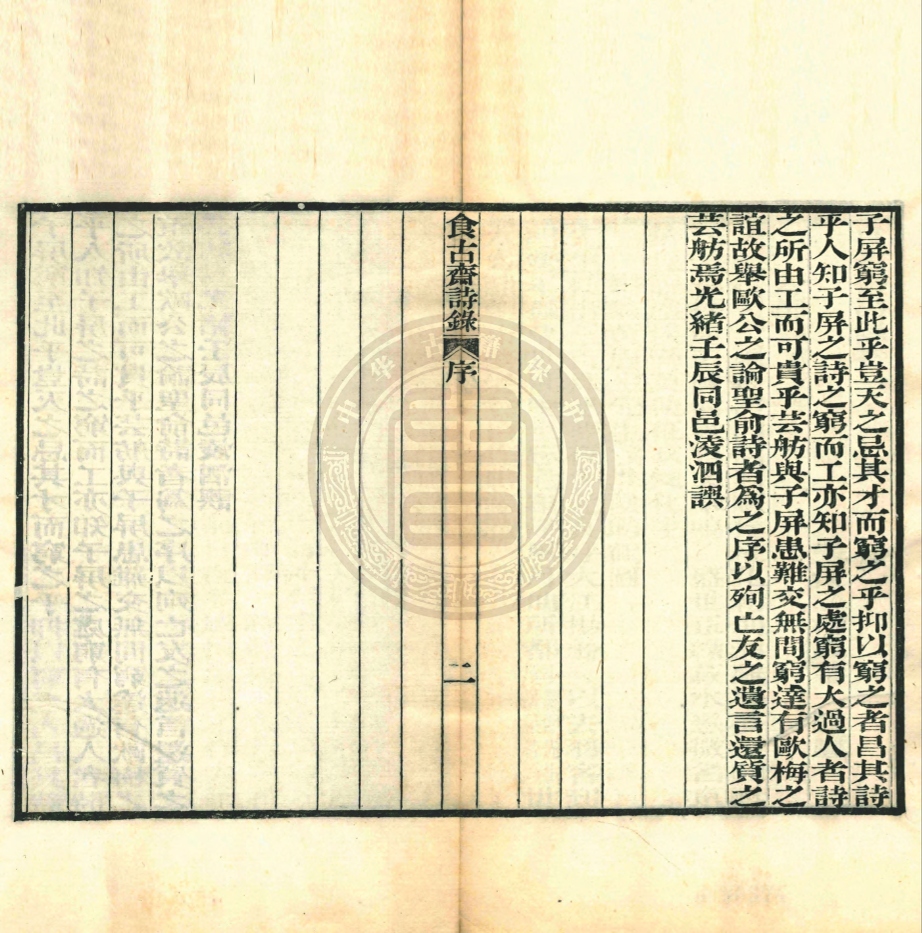 子屏窮至此乎豈天之忌其才而窮之乎抑以窮之者昌其詩
乎人知子屏之詩之窮而工亦知子屏之處窮有大過人者詩
之所由工而可貴乎芸舫與子屏患難交無間窮達有歐梅之
誼故舉歐公之論聖俞詩者為之序以殉亡友之遺言還質之
芸舫焉光緒壬辰同邑凌泗譔
食古齋詩錄 序 二